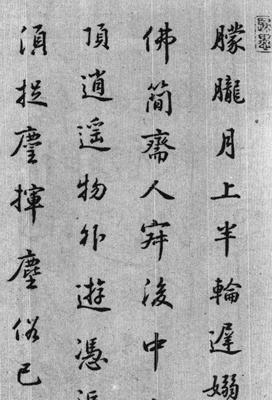 朦朧月上半輪遲嫋
佛簡齋人後中
頂逍遥物外遊憑
須捉麈揮塵俗已